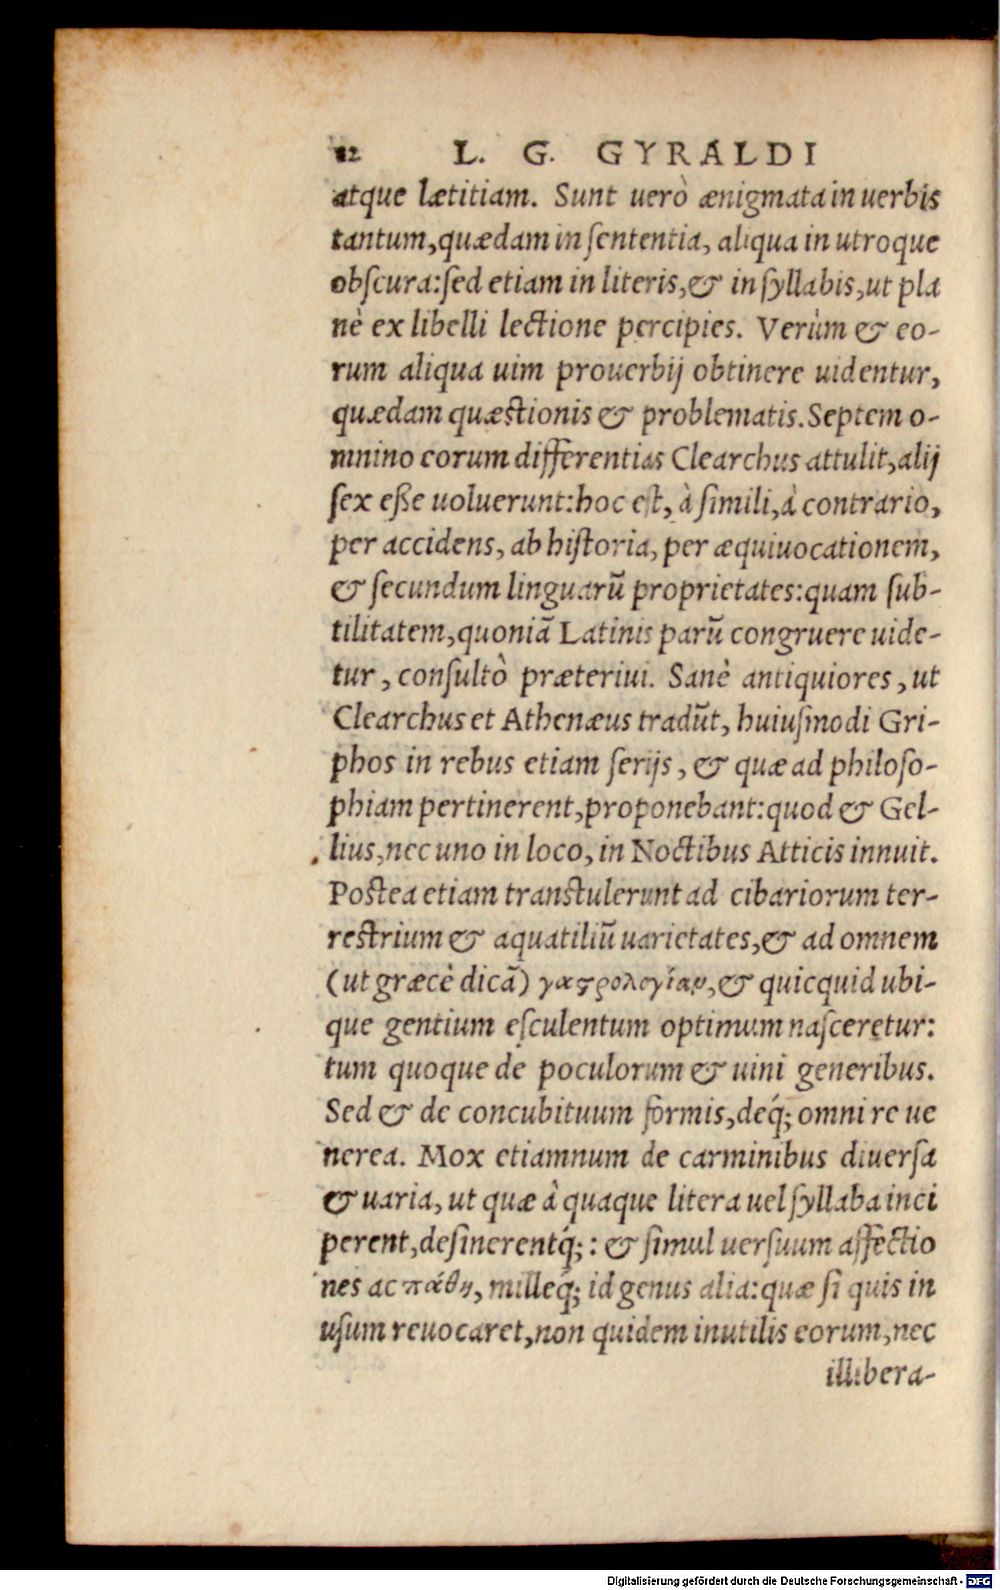 12 L. G. GYRALDI
atque lætitiam. Sunt uerò ænigmata in uerbis
tantum, quædam in ſententia, aliqua in utroque
obſcura: ſed etiam in literis, & in ſyllabis, ut pla
nè ex libelli lectione percipies. Verùm & eo-
rum aliqua uim prouerbij obtinere uidentur,
quædam quæstionis & problematis. Septem o-
mnino eorum differentias Clearchus attulit, alij
ſex eße uoluerunt: hoc est, à ſimili, à contrario,
per accidens, ab hiſtoria, per æquiuocationem,
& ſecundum linguarũ proprietates: quam ſub-
tilitatem, quoniã Latinis parũ congruere uide-
tur, conſultò præteriui. Sanè antiquiores, ut
Clearchus et Athenæus tradũt, huiuſmodi Gri-
phos in rebus etiam ſerijs, & quæ ad philoſo-
phiam pertinerent, proponebant: quod & Gel-
lius, nec uno in loco, in Noctibus Atticis innuit.
Postea etiam transtulerunt ad cibariorum ter-
restrium & aquatiliũ uarietates, & ad omnem
(ut græcè dicã) γαςρολογίαν, & quicquid ubi-
que gentium eſculentum optimum naſceretur:
tum quoque de poculorum & uini generibus.
Sed & de concubituum formis, deq́; omni re ue
nerea. Mox etiamnum de carminibus diuerſa
& uaria, ut quæ à quaque litera uel ſyllaba inci
perent, deſinerentq́;: & ſimul uerſuum affectio
nes ac πάθη, milleq́; id genus alia: quæ ſi quis in
uſum reuocaret, non quidem inutilis eorum, nec
illibera-
Digitalisierung gefördert durch die Deutsche Forschungsgemeinschaft - DFG